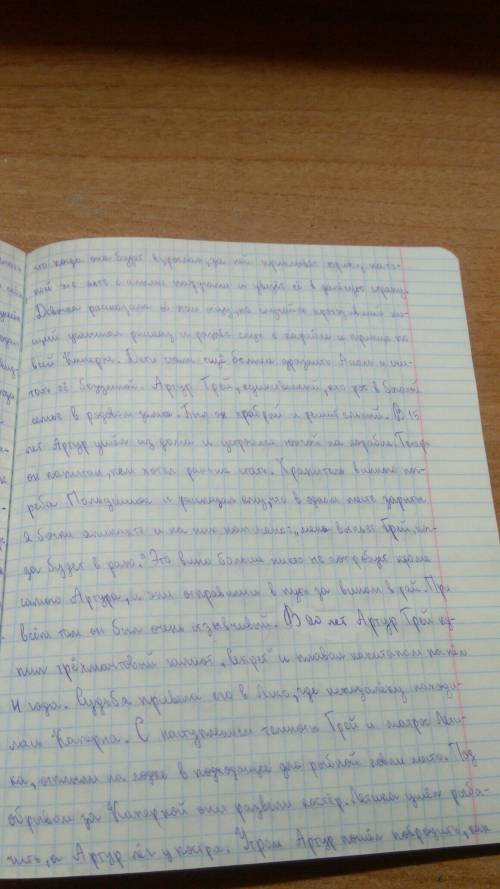 что когда она будет взрослая, за ней приплывёт принц на та-
кой же яхте с алыми парусами и увезёт её в далёкую страну.
Девочка рассказала об этом отцу, но случайно проходивший ни-
щий услышал рассказ и разнёс слух о корабле и принце по
всей Каперне. Дети стали ещё больше дразнить Ассоль и счи-
тать её безумной. Артур Грей, единственный, кто рос в богатой
семье в родовом замке. Был он храбрый и решительный. В 15
лет Артур ушёл из дома и устроился юнгой на корабль.
он капитан, кем хотел раньше стать. Хранитель винного по-
греба Польдишок и рассказал ему, что в одном месте зарыты
2 бочки аликанте и на них написано: „меня выпьет Грей, ког-
да будет в раю." Это вино больше никто не попробует кроме
самого Артура, и они отправились в путь за вином в рай. При
всём том он был очень отзывчивый. В 20 лет Артур Грей ку-
пил трёхмачтовый галиот „Секрет" и плавал капитаном на нём
4 года. Судьба привела его в Лисс, где неподалёку находи-
лась Каперна. С наступлением темноты Грей и матрос Лети-
ка, отплыли на лодке в подходящее для рыбной ловли место. Под
обрывом за Каперной они развели костёр. Летика ушёл рыба-
чить, а Артур лёг у костра. Утром Артур пошёл побродить, как